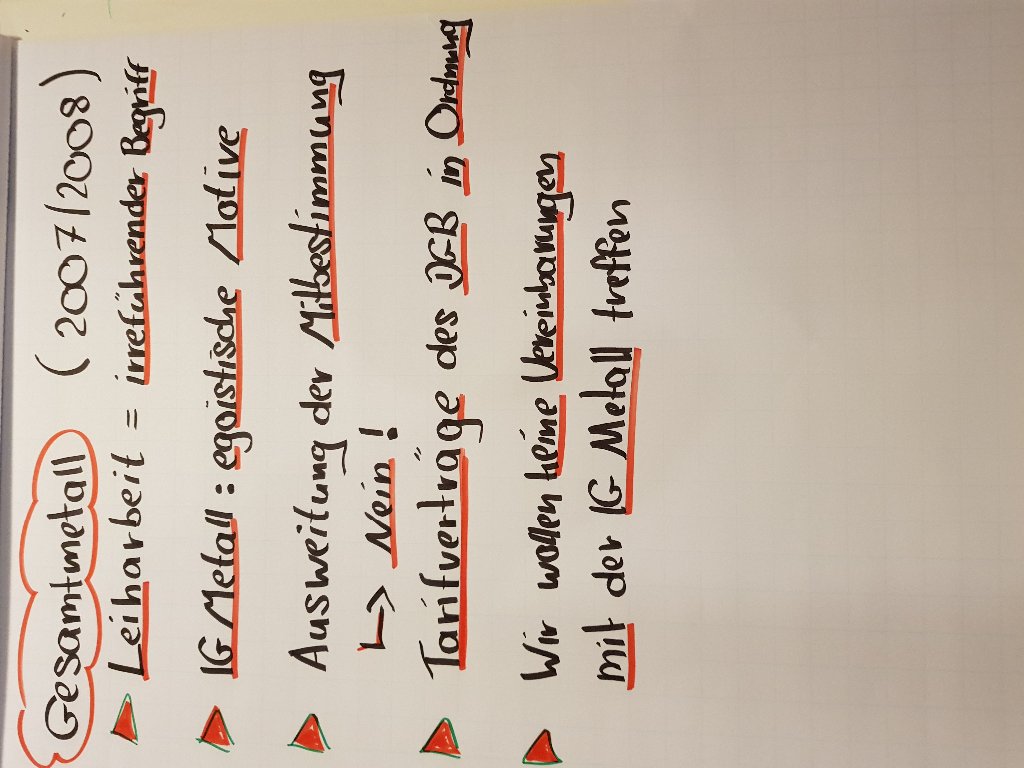 Gesamtmetall (2007/2008)
Leiharbeit = irreführender Begriff
IG Metall : egoistische Motive
Ausweitung der Mitbestimmung
↳ Nein!
Tarifverträge des DGB in Ordnung
Wir wollen keine Vereinbarungen
mit der IG Metall treffen